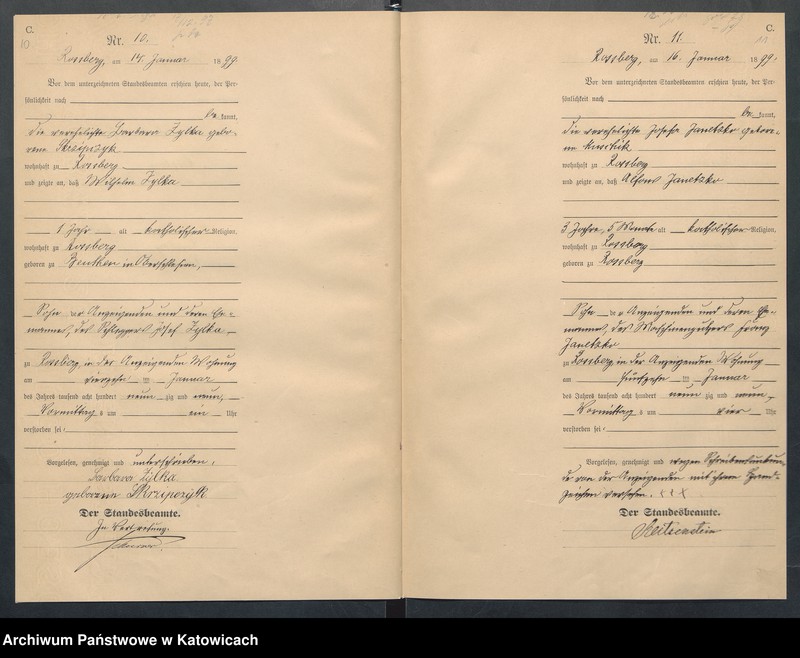 C.
10
Nr. 10.
Rossberg, am 14. Januar 1899
Vor dem unterzeichneten Standesbeamten erschien heute, der Per-
sönlichkeit nach
be kannt,
die verehelichte Barbara Zylka gebo-
rene Skrzipczyk
wohnhaft zu Rossberg
und zeigte an, daß Wilhelm Zylka
1 Jahr alt katholischer Religion,
wohnhaft zu Rossberg
geboren zu Beuthen in Oberschlesien,
Sohn der Anzeigenden und deren Ehe-
mannes, des Schleppers Josef Zylka
zu Rossberg, in der Anzeigenden Wohnung
am vierzehn ten Januar
des Jahres tausend acht hundert neun zig und neun,
Vormittag s um ein Uhr
verstorben sei.
Vorgelesen, genehmigt und unterschrieben.
Barbara Zylka
geborene Skrzipczyk
Der Standesbeamte.
In Vertretung.
C.
11
Nr. 11.
Rossberg, am 16. Januar 1899.
Vor dem unterzeichneten Standesbeamten erschien heute, der Per-
sönlichkeit nach
be kannt,
die verehelichte Josefa Janetzko gebore-
ne
wohnhaft zu Rossberg
und zeigte an, daß Alfons Janetzko
3 Jahre, 5 Monate alt katholischer Religion,
wohnhaft zu Rossberg
geboren zu Rossberg
Sohn der Anzeigenden und deren Ehe-
mannes, des Maschinenputzers Franz
Janetzko
zu Rossberg in der Anzeigenden Wohnung
am fünfzehn ten Januar
des Jahres tausend acht hundert neun zig und neun,
Vormittag s um vier Uhr
verstorben sei.
Vorgelesen, genehmigt und wegen Schreibensunkun-
de von der Anzeigenden mit ihrem Hand-
zeichen versehen. +++
Der Standesbeamte.
Reitzenstein
Archiwum Państwowe w Katowicach